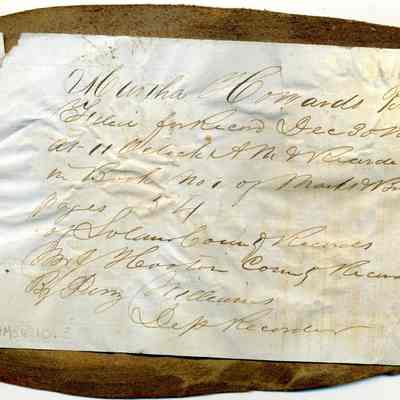 Martha Howards
Filed for Record Dec 30th
at 11 Oclock A M & Recorded
in Book no 1 of Marks &
pages 54
of Solano County Records
Houston County Recorder
By Perry Williams
Dep Recorder